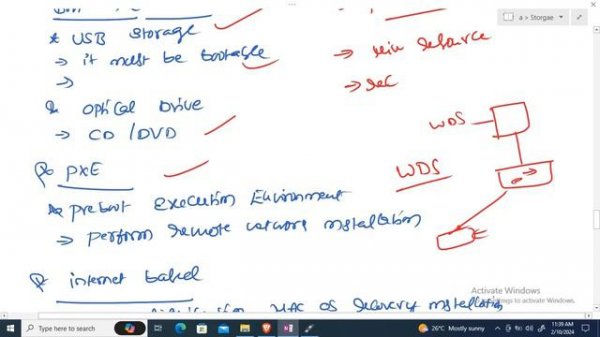 * USB Storage
→ it must be bootable
→
* optical Drive
→ CD / DVD
* PXE
* preboot execution Environment
→ perform remote network installation
* internet based
OS recovery installation
WDS
WDS
a > Storgae
Activate Windows
to activate Windows.
Type here to search
26°C Mostly sunny
11:39 AM
2/10/2024